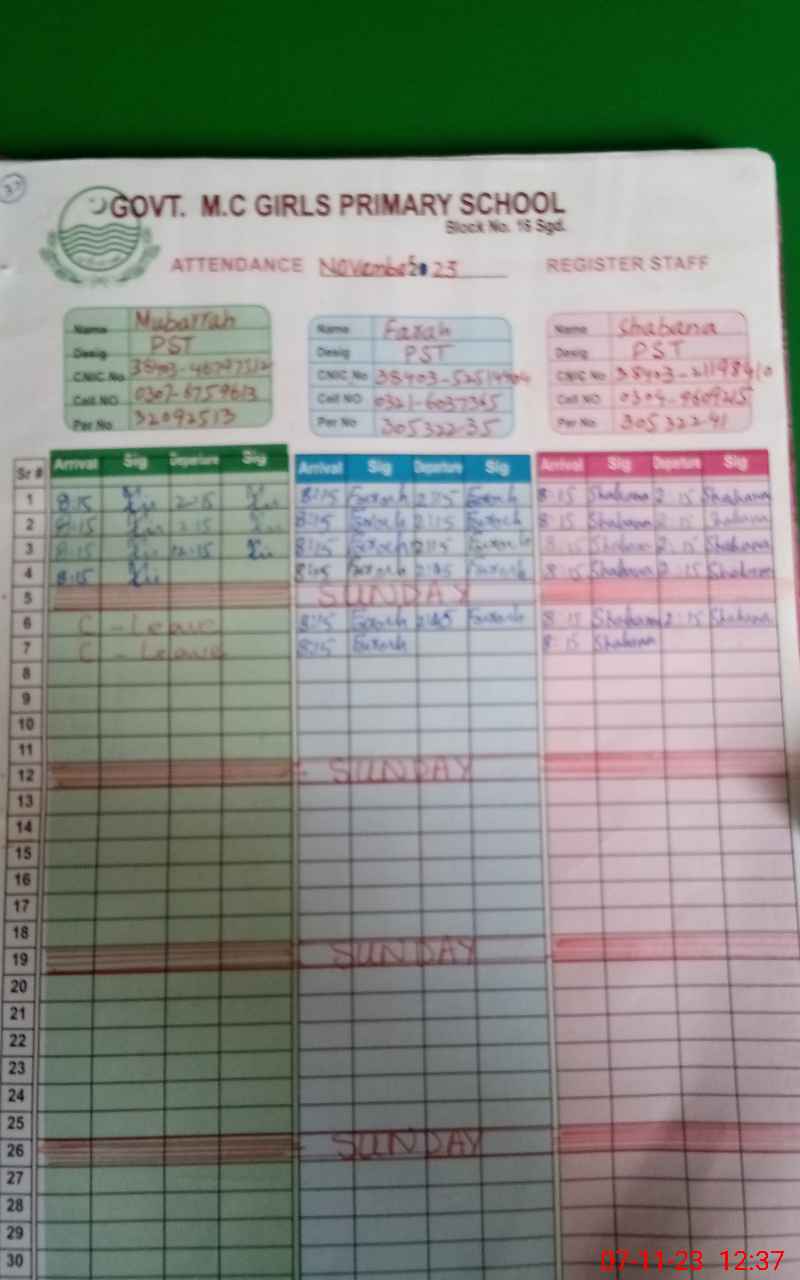 37
GOVT. M.C GIRLS PRIMARY SCHOOL
Block No. 16 Sgd.
ATTENDANCE November 23 REGISTER STAFF
Name Mubarrah Name Farah Name Shabana
Desig PST Desig PST Desig PST
CNIC No CNIC No CNIC No
Cell NO 0307-6759613 Cell NO 0321-6037365 Cell NO
Per No 32092513 Per No 30532235 Per No 30532241
Sr # Arrival Sig Departure Sig Arrival Sig Departure Sig Arrival Sig Departure Sig
1 8:15 2:15 8:15 Farah 2:15 Farah 8:15 Shabana 2:15 Shabana
2 8:15 2:15 8:15 Farah 2:15 Farah 8:15 Shabana 2:15 Shabana
3 8:15 12:15 8:15 Farah 2:15 Farah 8:15 Shabana 2:15 Shabana
4 8:15 8:15 Farah 2:45 Farah 8:15 Shabana 2:15 Shabana
5 SUNDAY
6 C - Leave 8:15 Farah 2:45 Farah 8:15 Shabana 2:15 Shabana
7 C - Leave 8:15 Farah 8:15 Shabana
8
9
10
11
12 SUNDAY
13
14
15
16
17
18
19 SUNDAY
20
21
22
23
24
25
26 SUNDAY
27
28
29
30
07-11-23 12:37